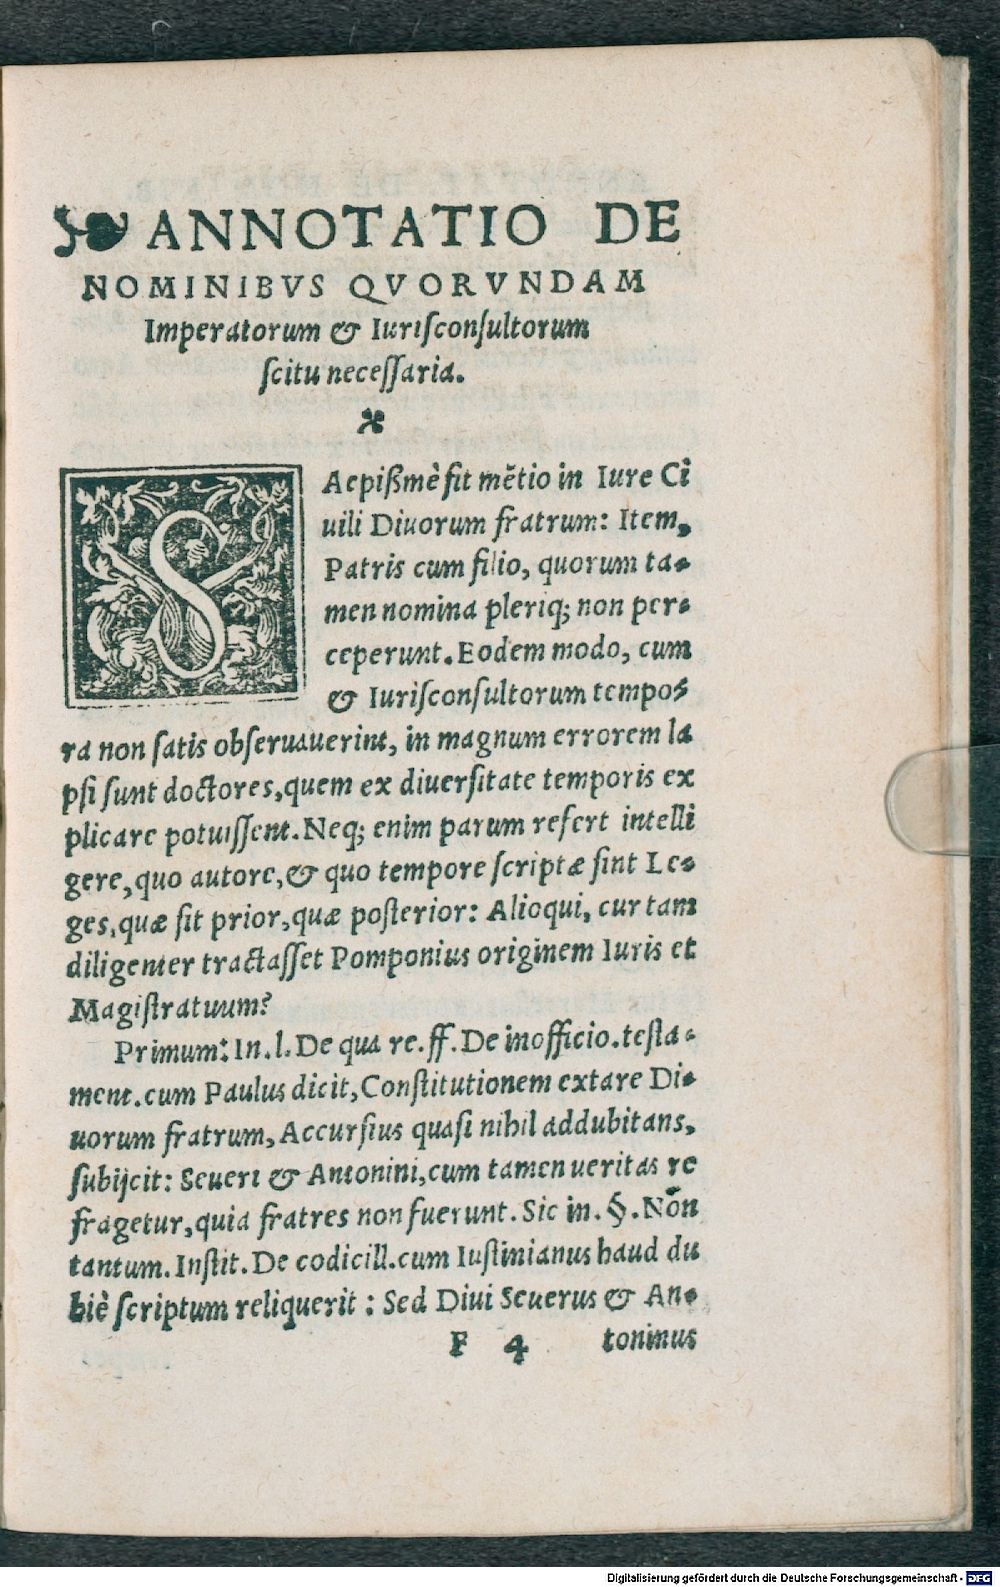 ❧ ANNOTATIO DE
NOMINIBVS QVORVNDAM
Imperatorum & Iuriſconſultorum
ſcitu neceſſaria.
SAepißmè fit mẽtio in Iure Ci
uili Diuorum fratrum: Item,
Patris cum filio, quorum ta-
men nomina pleriq; non per-
ceperunt. Eodem modo, cum
& Iuriſconſultorum tempo-
ra non ſatis obſeruauerint, in magnum errorem la
pſi ſunt doctores, quem ex diuerſitate temporis ex
plicare potuiſſent. Neq; enim parum refert intelli
gere, quo autore, & quo tempore ſcriptæ ſint Le-
ges, quæ ſit prior, quæ poſterior: Alioqui, cur tam
diligenter tractaſſet Pomponius originem Iuris et
Magiſtratuum?
Primum: In. l. De qua re. ff. De inofficio. teſta-
ment. cum Paulus dicit, Conſtitutionem extare Di-
uorum fratrum, Accurſius quaſi nihil addubitans,
ſubijcit: Seueri & Antonini, cum tamen ueritas re
fragetur, quia fratres non fuerunt. Sic in. §. Non
tantum. Inſtit. De codicill. cum Iuſtinianus haud du
biè ſcriptum reliquerit : Sed Diui Seuerus & An-
F 4 toninus
Digitalisierung gefördert durch die Deutsche Forschungsgemeinschaft - DFG